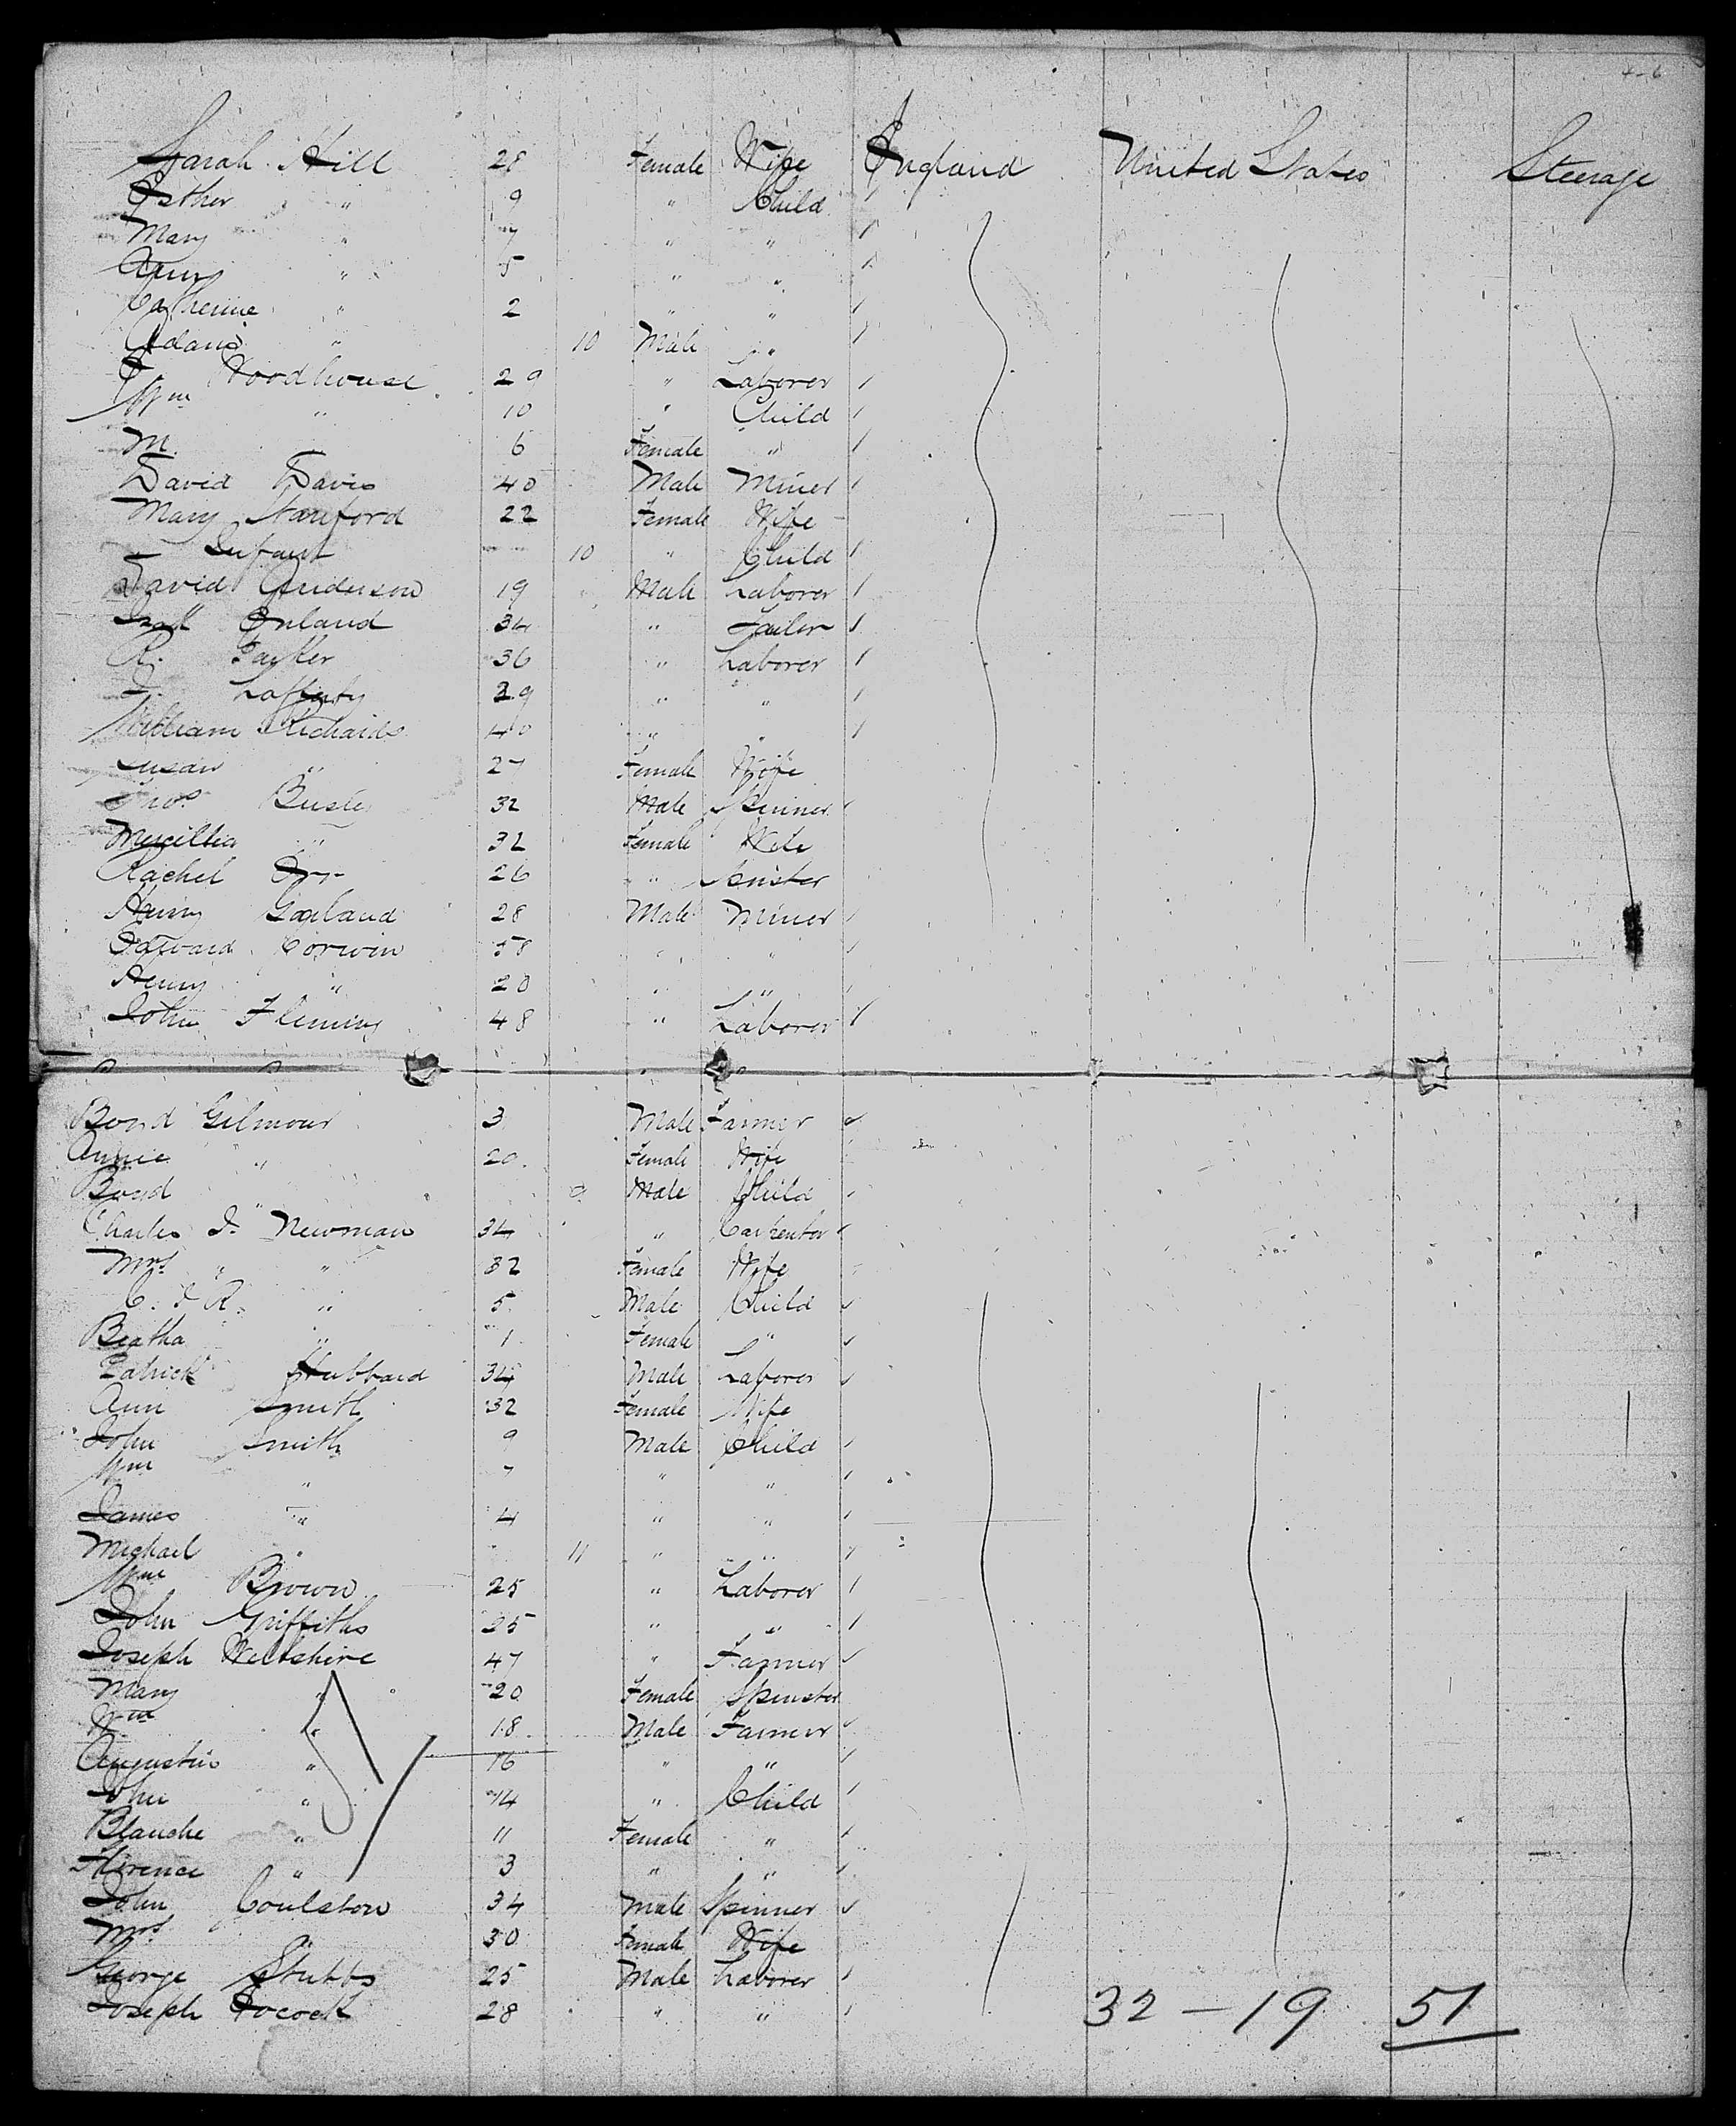 Sarah Hill 28 Female Wife England United States Steerage
Esther " 9 " Child
Mary " 7 " "
Amy " 5 " "
Catherine " 2 " "
Adam " 10 Male "
Woodhouse 29 " Laborer
Wm " 10 " Child
M. 6 Female "
David Davis 40 Male Miner
Mary Stanford 22 Female Wife
— Infant 10 " Child
David Anderson 19 Male Laborer
34 " Tailor
R. 36 " Laborer
Lafferty 39 " "
William Richards 40 " "
Susan " 27 Female Wife
32 Male Spinner
" 32 Female Wife
Rachel Orr 26 " Spinster
Henry Garland 28 Male Miner
Edward Corwin 58 " "
Henry " 20 " "
John Fleming 48 " Laborer
Boyd Gilmour 3 Male Farmer
Annie " 20 Female Wife
Boyd " 9 Male Child
Charles J. Newman 34 " Carpenter
Mrs " " 32 Female Wife
C. J. R. " 5 Male Child
Beatha " 1 Female "
Patrick Hubbard 34 Male Laborer
Ann Smith 32 Female Wife
John Smith 9 Male Child
Wm " 7 " "
James " 4 " "
Michael " 11 " "
Wm Brown 25 " Laborer
John Griffiths 25 " "
Joseph Wiltshire 47 " Farmer
Mary " 20 Female Spinster
Wm " 18 Male Farmer
Augustus " 16 " "
John " 14 " Child
Blanche " 11 Female "
Florence " 3 " "
John Coulston 34 Male Spinner
Mrs " 30 Female Wife
George Stubbs 25 Male Laborer
Joseph Pocock 28 " "
32 — 19 51